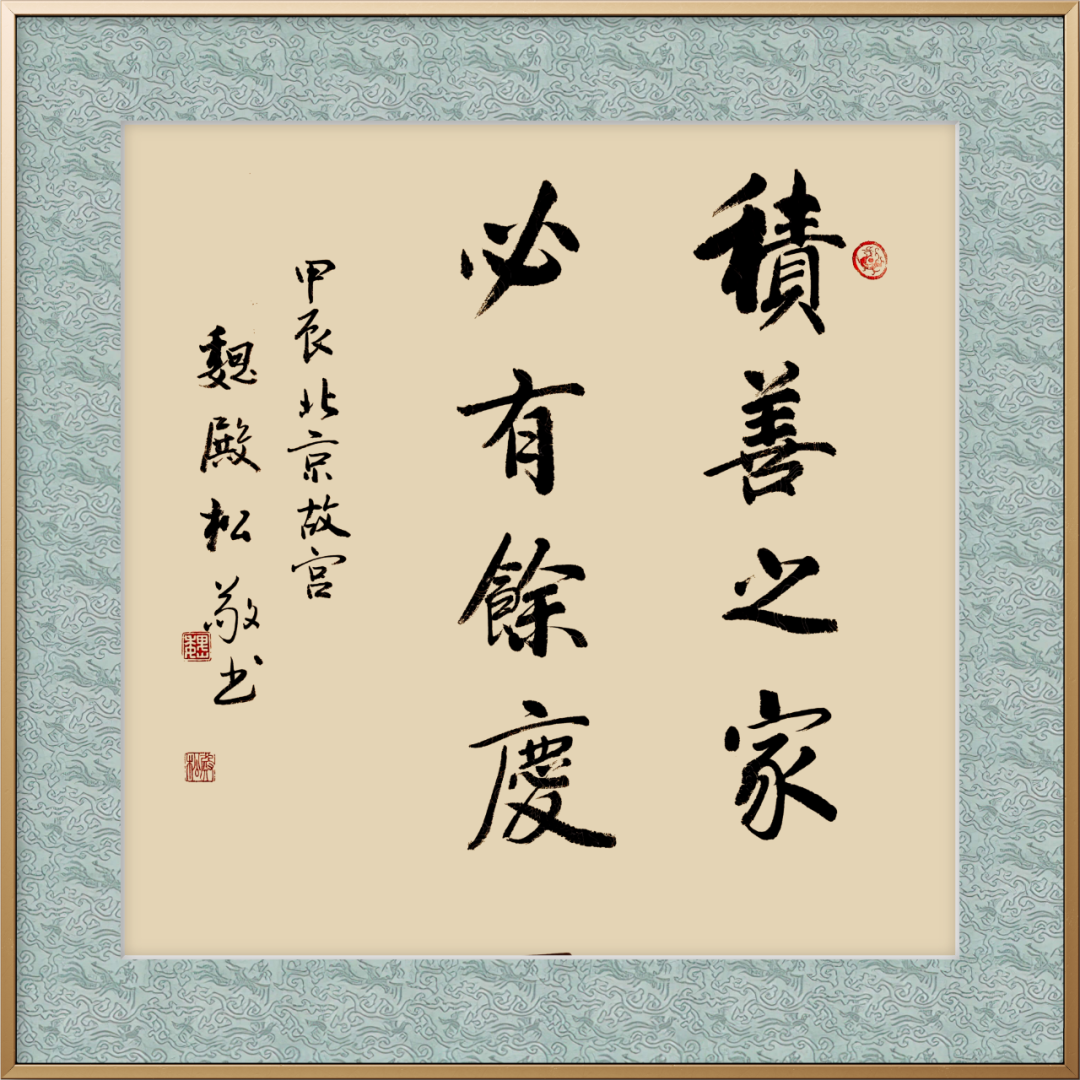 積善之家
必有餘慶
甲辰北京故宫
魏殿松敬书
魏
殿松